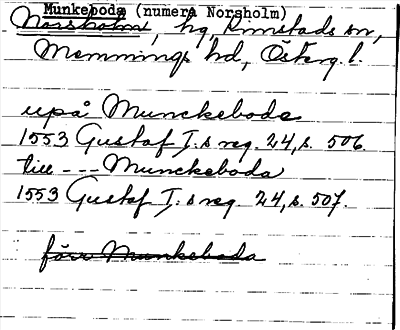 Munkeboda (numera Norsholm)
Norsholm, hg, Kimstads sn,
Memmings hd, Österg. l.
upå Munckeboda
1553 Gustaf I:s reg. 24, s. 506.
till --- Munckeboda
1553 Gustaf I:s reg. 24, s. 507.
förr Munkeboda